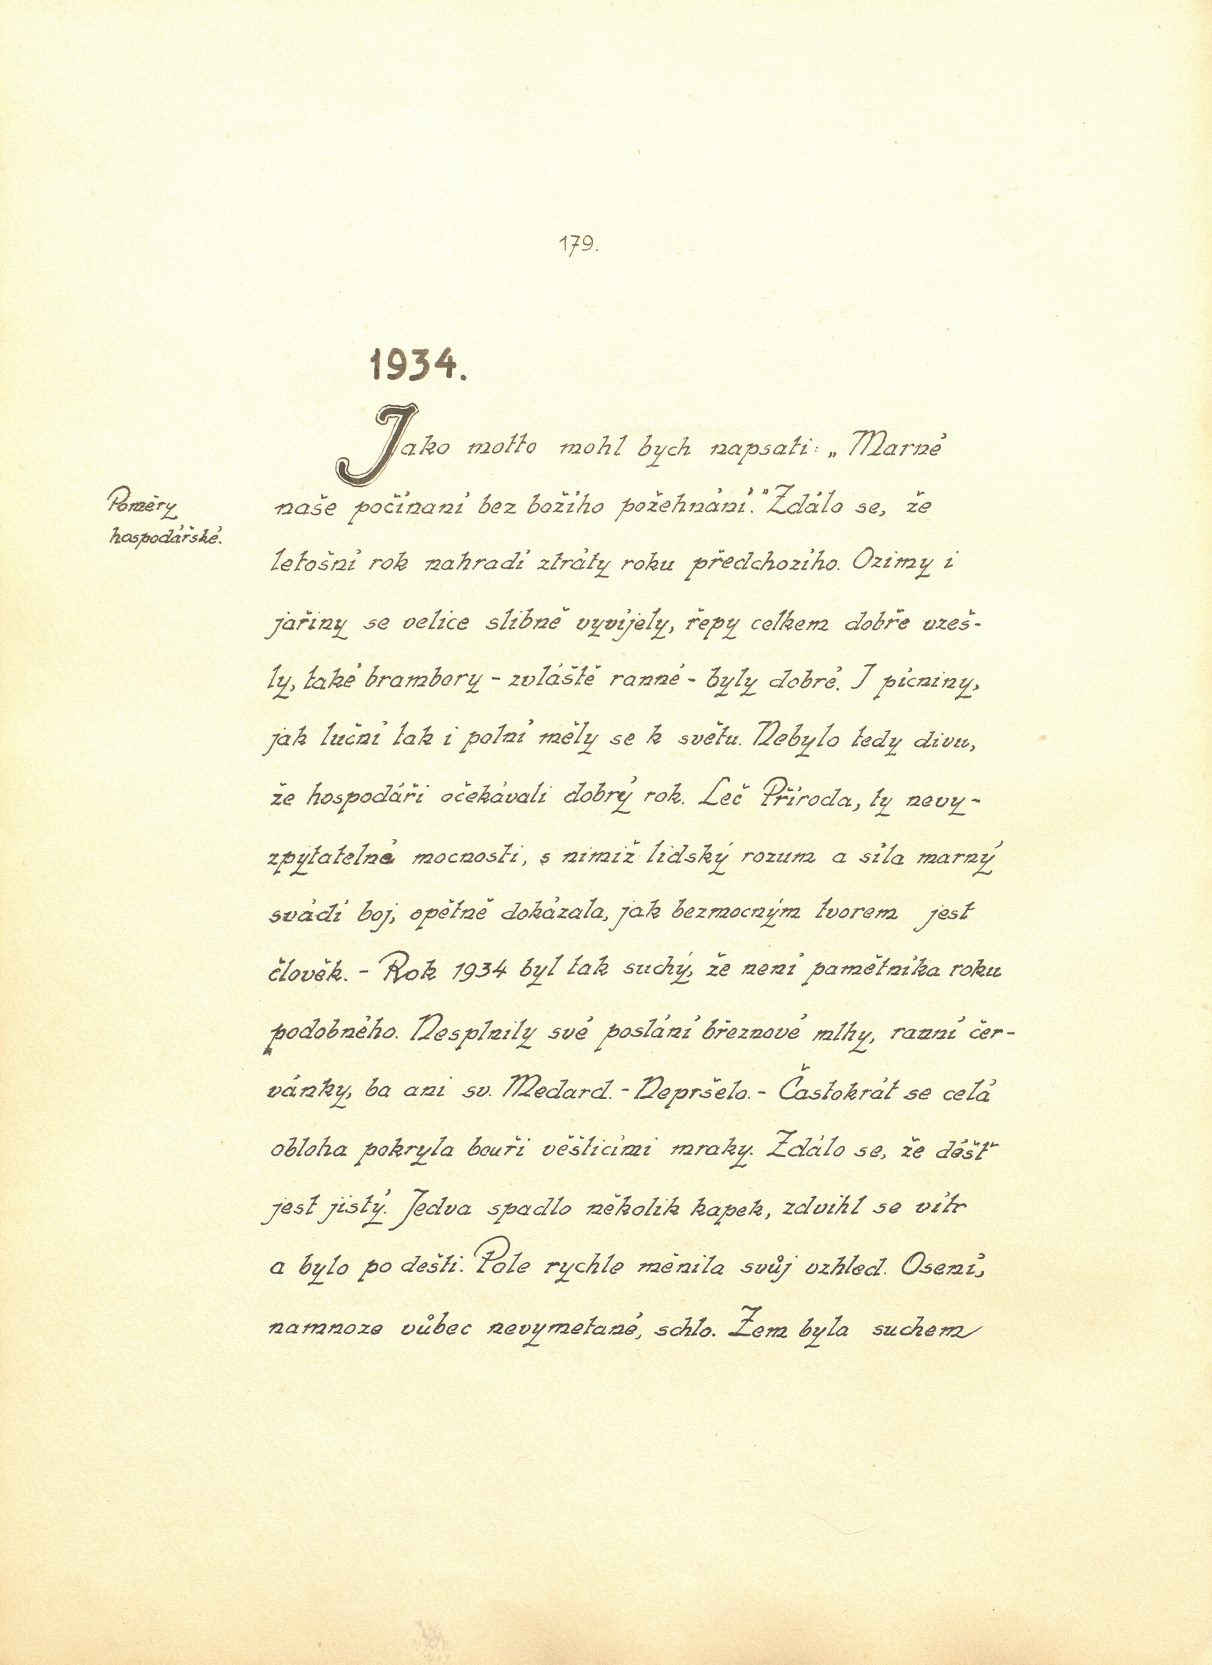 179.
1934.
Jako motto mohl bych napsati: „Marné
Poměry
hospodářské.
naše počínaní bez božího požehnání." Zdálo se, že
letošní rok nahradí ztráty roku předchozího. Ozimy i
jařiny se velice slibně vyvíjely, řepy celkem dobře vzeš-
ly, také brambory - zvláště ranné - byly dobré. I pícniny,
jak luční tak i polní měly se k světu. Nebylo tedy divu,
že hospodáři očekávali dobrý rok. Leč Příroda, ty nevy-
zpytatelné mocnosti, s nimiž lidský rozum a síla marný
svádí boj, opětně dokázala, jak bezmocným tvorem jest
člověk. - Rok 1934 byl tak suchý, že není pamětníka roku
podobného. Nesplnily své poslání březnové mlhy, ranní čer-
vánky, ba ani sv. Medard. - Nepršelo. - Častokrát se celá
obloha pokryla bouři věštícími mraky. Zdálo se, že déšť
jest jistý. Jedva spadlo několik kapek, zdvihl se vítr
a bylo po dešti. Pole rychle měnila svůj vzhled. Osení,
namnoze vůbec nevymetané, schlo. Zem byla suchem